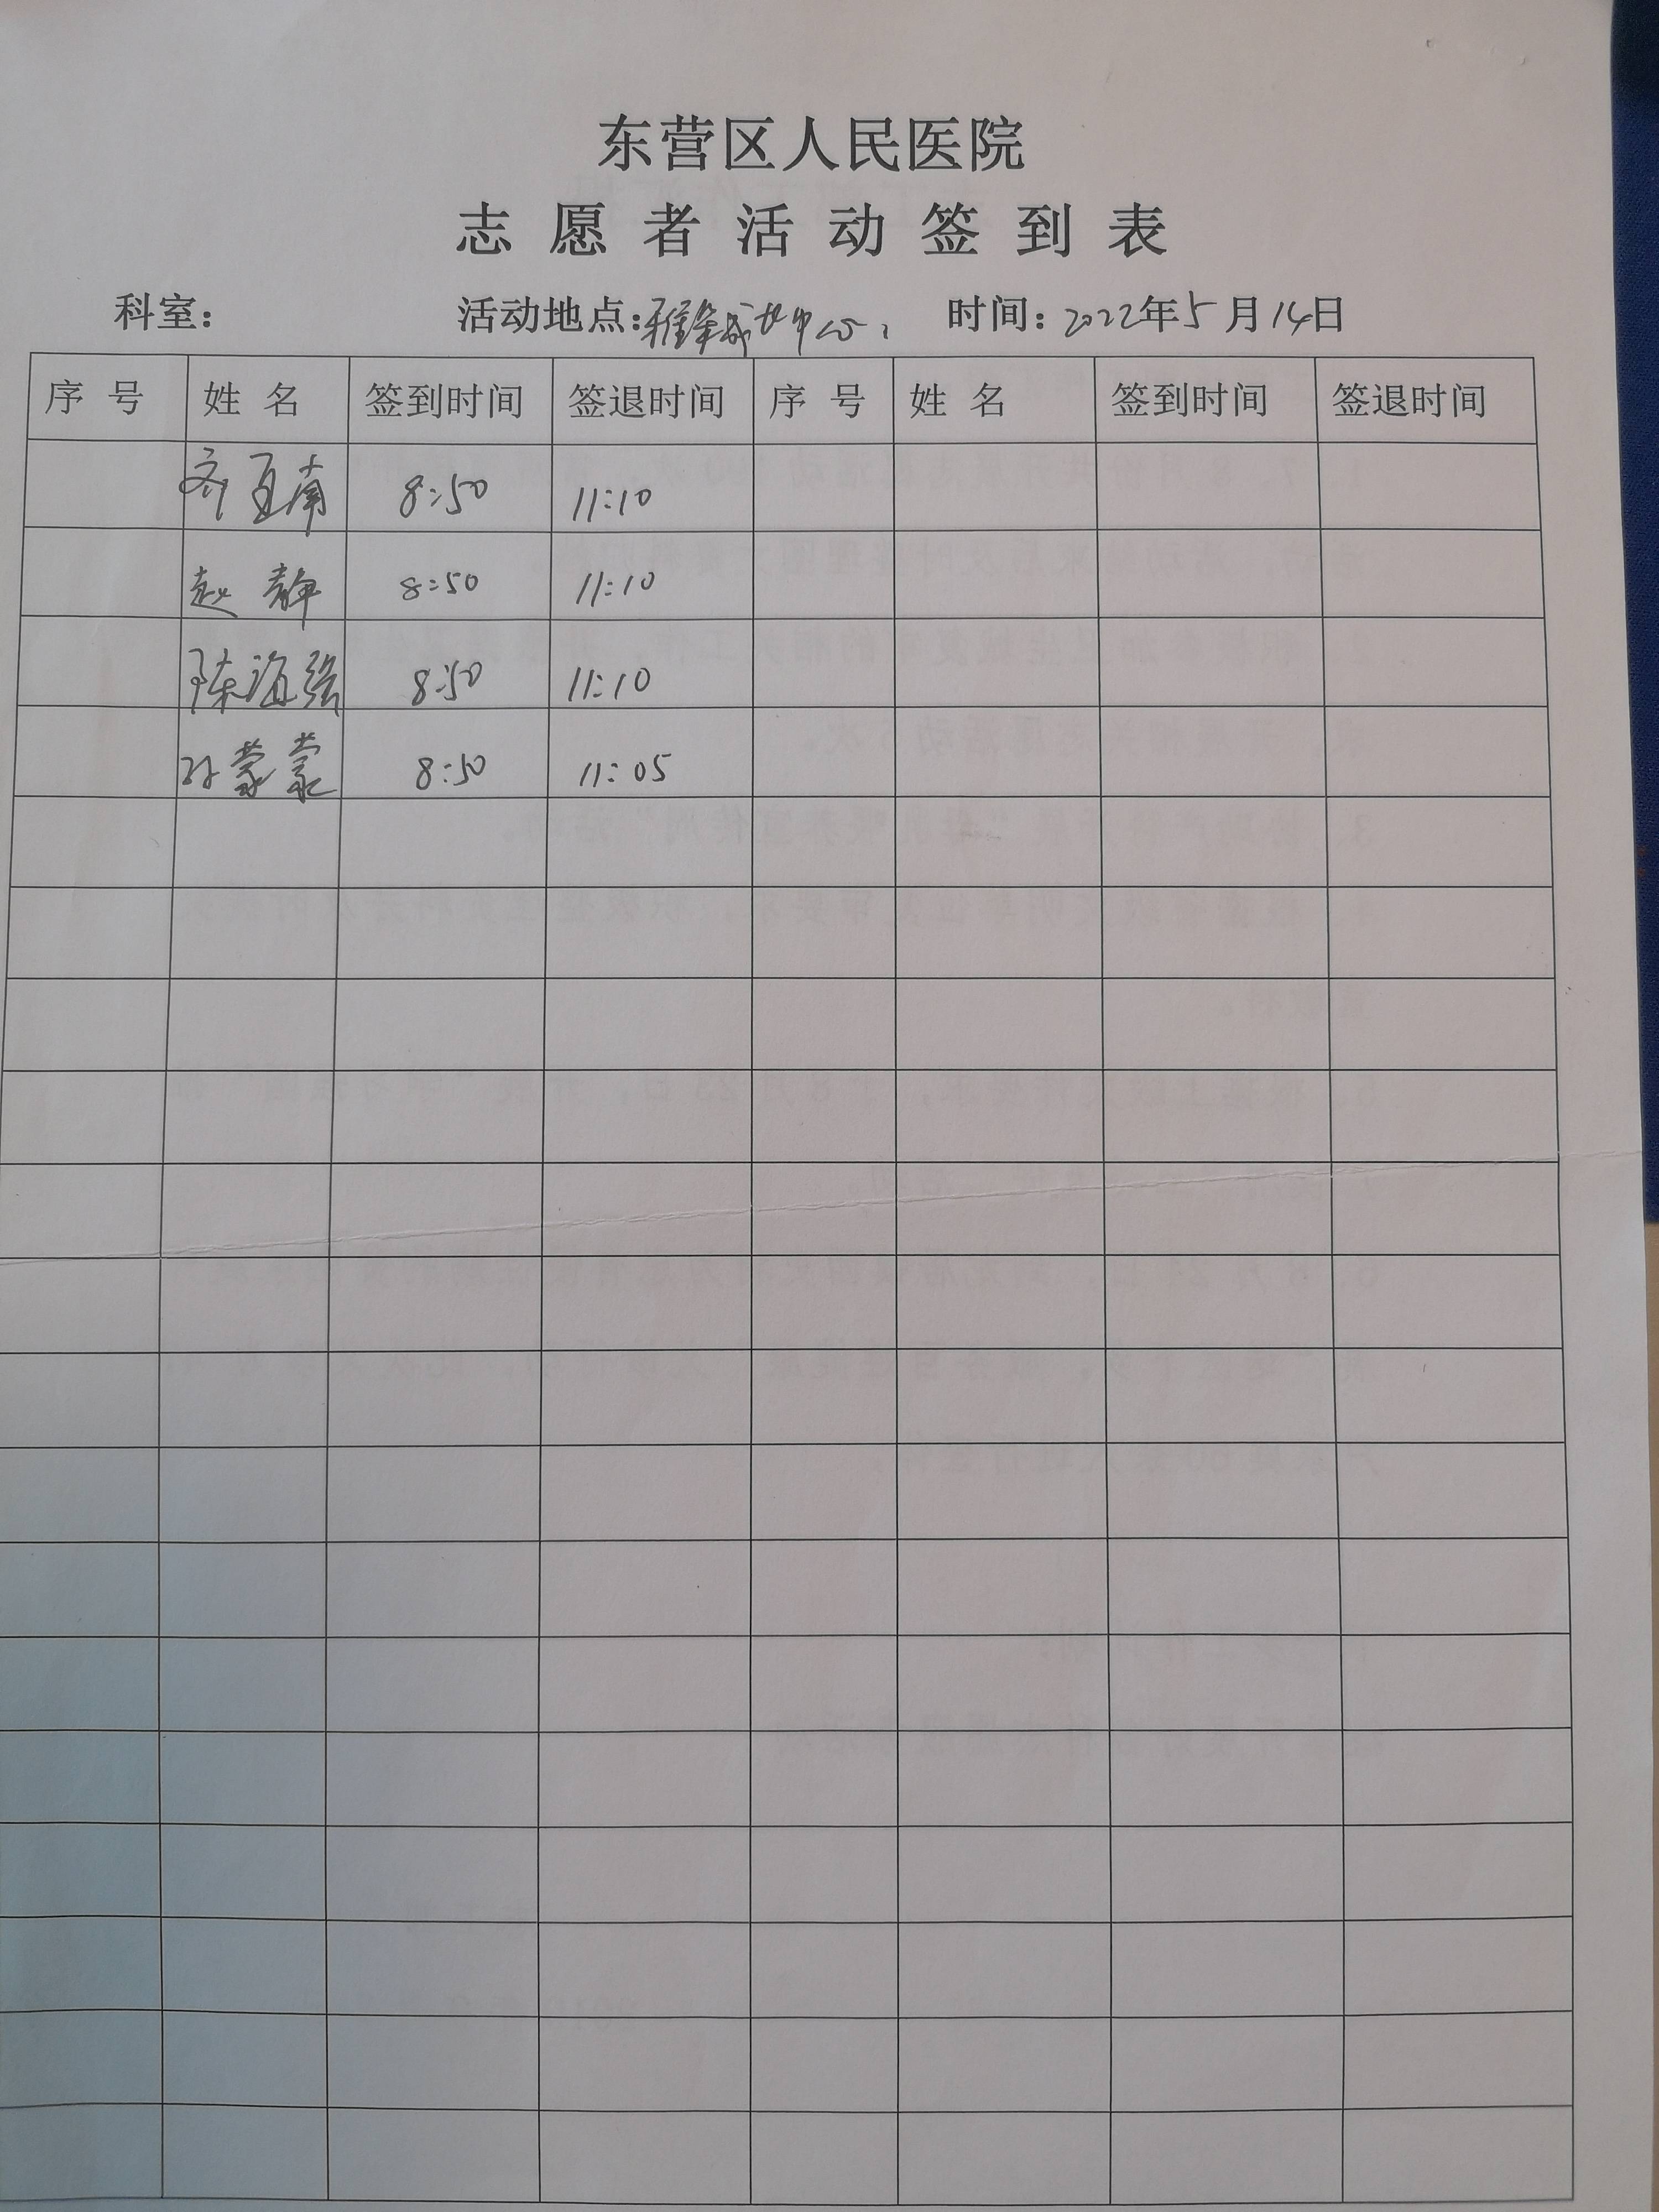 东营区人民医院
志愿者活动签到表
科室： 活动地点: 时间：2022年5月14日
序号 姓名 签到时间 签退时间 序号 姓名 签到时间 签退时间
齐亚南 8:50 11:10
赵静 8:50 11:10
陈海强 8:50 11:10
孙蒙蒙 8:50 11:05